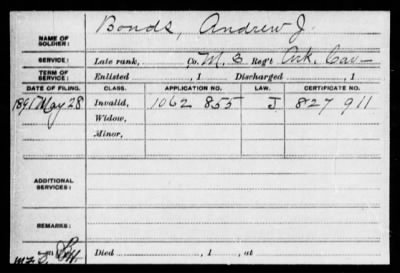 NAME OF SOLDIER: Bonds, Andrew J.
SERVICE: Late rank, Co. M. 3 Reg't Ark. Cav-
TERM OF SERVICE: Enlisted , 1 Discharged , 1
DATE OF FILING. CLASS. APPLICATION NO. LAW. CERTIFICATE NO.
1891 May 28 Invalid, 1062 855 J 827 911
Widow,
Minor,
ADDITIONAL SERVICES:
REMARKS:
Died , 1 , at